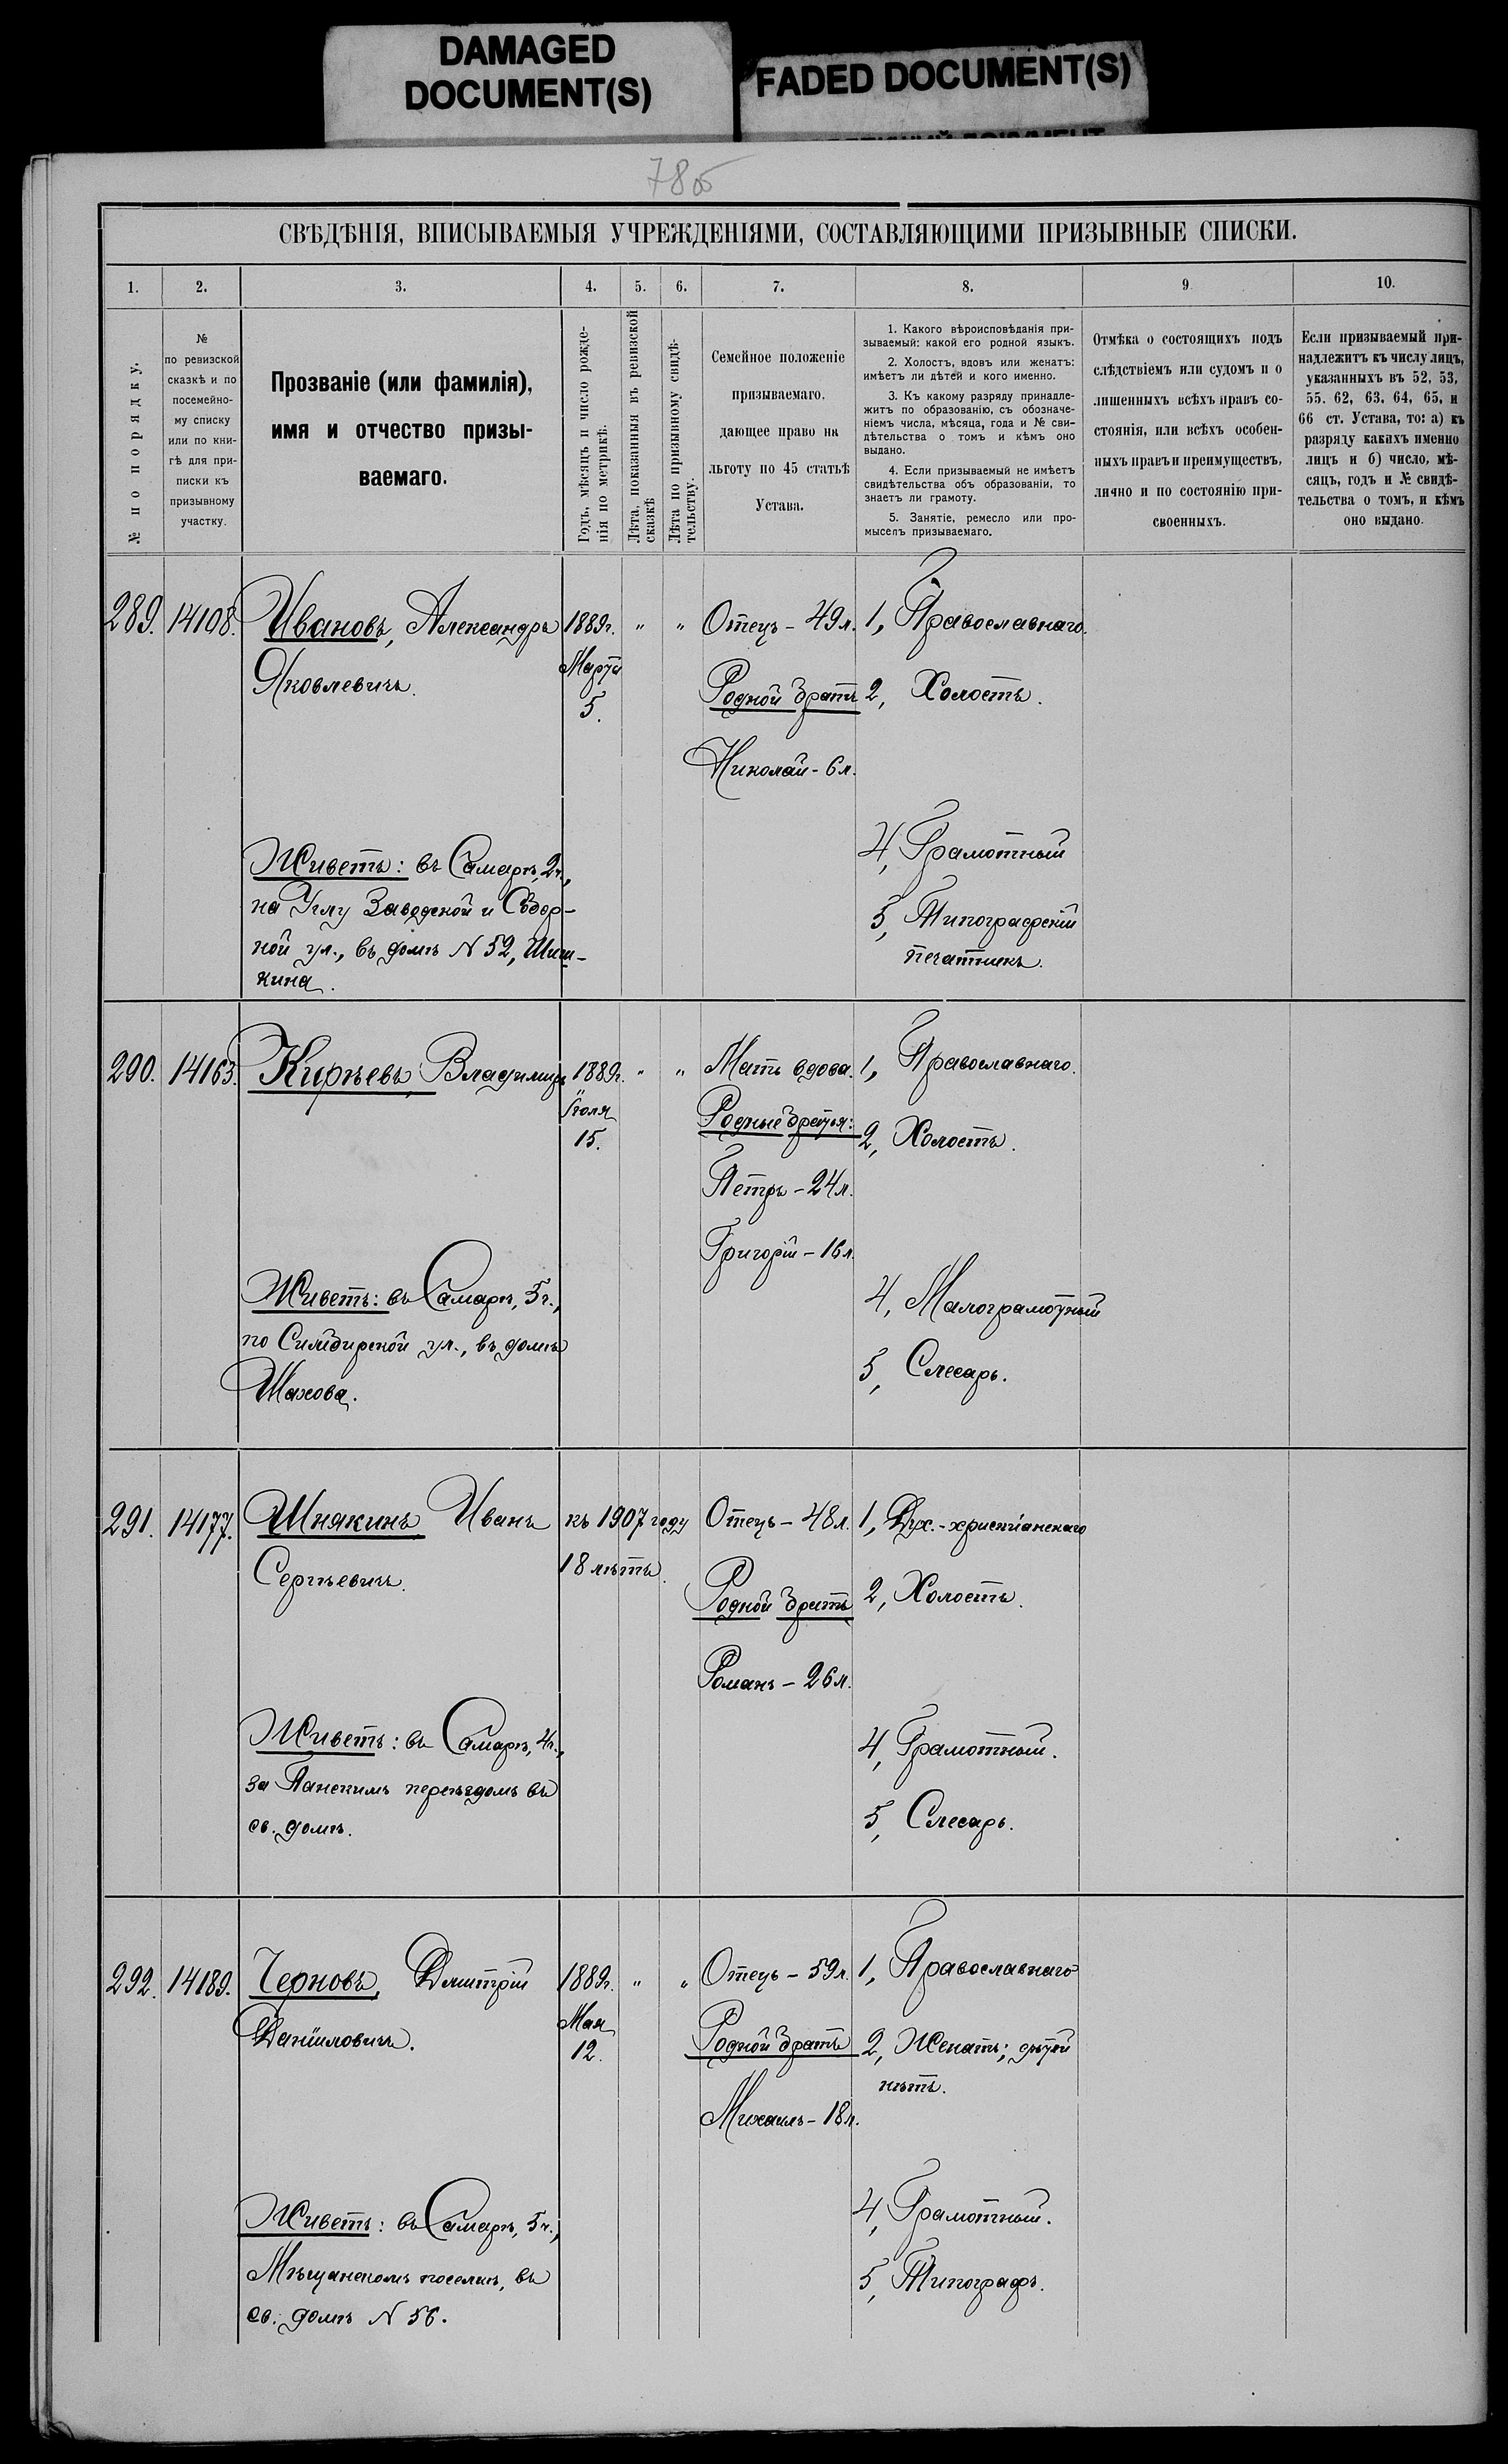 DAMAGED
DOCUMENT(S)
FADED DOCUMENT(S)
785
СВѢДѢНІЯ, ВПИСЫВАЕМЫЯ УЧРЕЖДЕНІЯМИ, СОСТАВЛЯЮЩИМИ ПРИЗЫВНЫЕ СПИСКИ.
1. 2. 3. 4. 5. 6. 7. 8. 9. 10.
№ по порядку.
№
по ревизской
сказкѣ и по
посемейно-
му списку
или по кни-
гѣ для при-
писки къ
призывному
участку.
Прозваніе (или фамилія),
имя и отчество призы-
ваемаго.
Годъ, мѣсяцъ и число рожде-
нія по метрикѣ.
Лѣта, показанныя въ ревизской
сказкѣ
Лѣта по призывному свидѣ-
тельству.
Семейное положеніе
призываемаго,
дающее право на
льготу по 45 статьѣ
Устава.
1. Какого вѣроисповѣданія при-
зываемый: какой его родной языкъ.
2. Холостъ, вдовъ или женатъ:
имѣетъ ли дѣтей и кого именно.
3. Къ какому разряду принадле-
житъ по образованію, съ обозначе-
ніемъ числа, мѣсяца, года и № сви-
дѣтельства о томъ и кѣмъ оно
выдано.
4. Если призываемый не имѣетъ
свидѣтельства объ образованіи, то
знаетъ ли грамоту.
5. Занятіе, ремесло или про-
мыселъ призываемаго.
Отмѣка о состоящихъ подъ
слѣдствіемъ или судомъ и о
лишенныхъ всѣхъ правъ со-
стоянія, или всѣхъ особен-
ныхъ правъ и преимуществъ,
лично и по состоянію при-
своенныхъ.
Если призываемый при-
надлежитъ къ числу лицъ,
указанныхъ въ 52, 53,
55. 62, 63, 64, 65, и
66 ст. Устава, то: а) къ
разряду какихъ именно
лицъ и б) число, мѣ-
сяцъ, годъ и № свидѣ-
тельства о томъ, и кѣмъ
оно выдано.
289. 14108. Ивановъ, Александръ 1889г. " " Отецъ - 49л. 1, Православнаго.
Яковлевичъ. Марта
5.
Родной братъ 2, Холостъ.
Николай - 6 л.
4, Грамотный
Живетъ: въ Самарѣ, 2ч.,
на Углу Заводской и Сѣбор-
ной ул., въ домѣ N 52, Шиш-
кина.
5, Типографскій
печатникъ.
290. 14163. Кирѣевъ, Владиміръ 1889г. " " Мать вдова. 1, Православнаго.
Іюля
15.
Родные братья: 2, Холостъ.
Петръ - 24 л.
Григорій - 16 л.
Живетъ: въ Самарѣ, 5ч.,
по Симбирской ул., въ домѣ
Шахова.
4, Малограмотный
5, Слесарь.
291. 14177. Шнякинъ Иванъ къ 1907 году Отецъ - 48 л. 1, Дух.-христіанскаго
Сергѣевичъ. 18 лѣтъ.
Родной братъ 2, Холостъ.
Романъ - 26 л.
Живетъ: въ Самарѣ, 4ч.,
за Панскимъ переѣздомъ въ
св. домѣ.
4, Грамотный.
5, Слесарь.
292. 14189. Черновъ, Дмитрій 1889г. " " Отецъ - 59 л. 1, Православнаго
Даніиловичъ. Мая
12.
Родной братъ 2, Женатъ; дѣтей
нѣтъ.
Михаилъ - 18 л.
Живетъ: въ Самарѣ, 5ч.,
Мѣщанскомъ поселкѣ, въ
св. домѣ N 56.
4, Грамотный.
5, Типографъ.